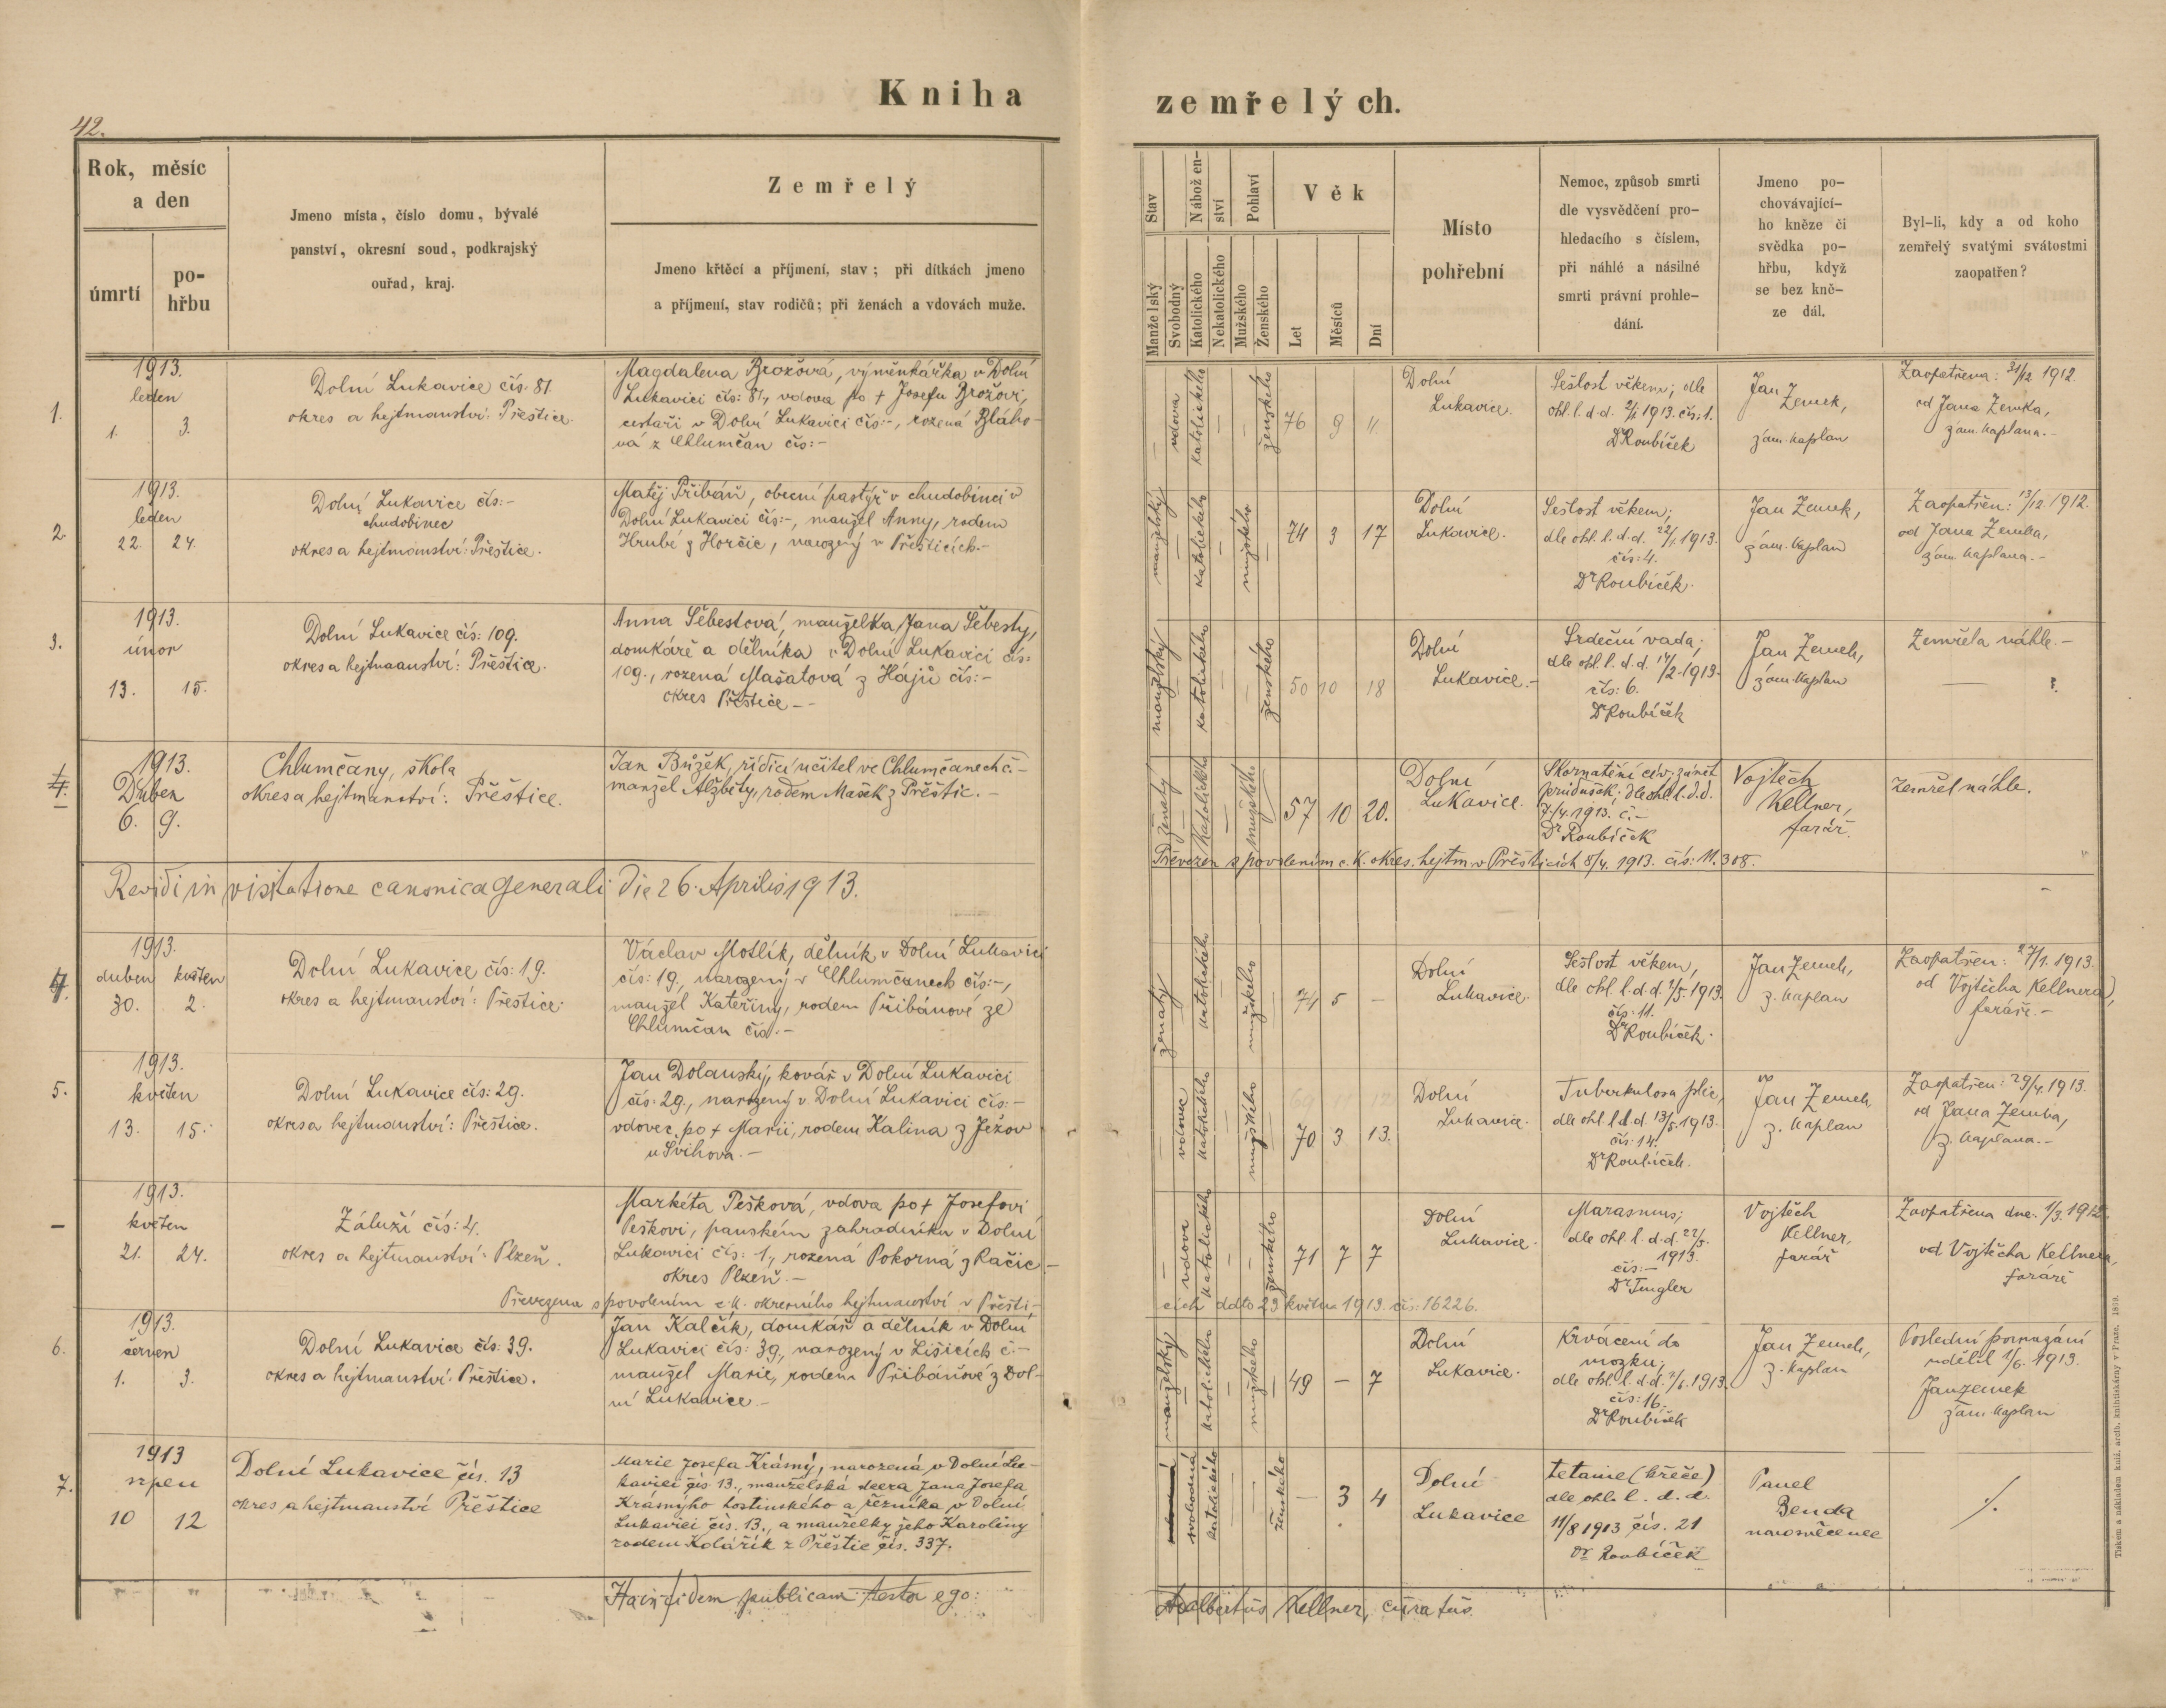 42.
Kniha zemřelých.
Rok, měsíc
a den
úmrtí
po-
hřbu
Jmeno místa, číslo domu, bývalé
panství, okresní soud, podkrajský
ouřad, kraj.
Zemřelý
Jmeno křtěcí a příjmení, stav; při dítkách jmeno
a příjmení, stav rodičů; při ženách a vdovách muže.
Stav
Manželský
Svobodný
Nábožen-
ství
Katolického
Nekatolického
Pohlaví
Mužského
Ženského
Věk
Let
Měsíců
Dní
Místo
pohřební
Nemoc, způsob smrti
dle vysvědčení pro-
hledacího s číslem,
při náhlé a násilné
smrti právní prohle-
dání.
Jmeno po-
chovávající-
ho kněze či
svědka po-
hřbu, když
se bez kně-
ze dál.
Byl-li, kdy a od koho
zemřelý svatými svátostmi
zaopatřen?
1.
1913.
leden
1. 3.
Dolní Lukavice čís: 81
okres a hejtmanství: Přeštice.
Magdalena Brožová, výměnkářka v Dolní
Lukavici čís: 81, vdova po † Josefu Brožovi,
cestaři v Dolní Lukavici čís:-, rozená Bláho-
vá z Chlumčan čís:-
vdova
katolického
ženského
76 9 11
Dolní
Lukavice.
Sešlost věkem; dle
ohl. l. d. d. 2/1 1913. čís: 1.
Dr Roubíček
Jan
Zemek,
zám. kaplan
Zaopatřena: 31/12 1912.
od Jana Zemka,
zám. kaplana.-
2.
1913.
leden
22. 24.
Dolní Lukavice čís:-
chudobinec
okres a hejtmanství: Přeštice.
Matěj Přibáň, obecní pastýř v chudobinci v
Dolní Lukavici čís:-, manžel Anny, rodem
Hrubé z Horčic, narozený v Přešticích.-
manželský
katolického
mužského
74 3 17
Dolní
Lukavice.
Sešlost věkem;
dle ohl. l. d. d. 22/1 1913.
čís: 4.
Dr Roubíček.
Jan Zemek,
zám. kaplan
Zaopatřen: 13/12. 1912.
od Jana Zemka,
zám. kaplana.-
3.
1913.
únor
13. 15.
Dolní Lukavice čís: 109.
okres a hejtmanství: Přeštice.
Anna Šebestová, manželka Jana Šebesty,
domkáře a dělníka v Dolní Lukavici čís:
109., rozená Mašatová z Hájů čís:-
okres Přeštice --
manželský
katolického
ženského
50 10 18
Dolní
Lukavice.-
Srdeční vada;
dle ohl. l. d. d. 14/2. 1913.
čís: 6.
Dr Roubíček
Jan Zemek,
zám. kaplan
Zemřela náhle.-
4.
1913.
Duben
6. 9.
Chlumčany, škola
okres a hejtmanství: Přeštice.
Jan Brůžek, řídící učitel ve Chlumčanech č.-
manžel Alžběty, rodem Mašek z Přeštic.-
ženatý
katolického
mužského
57 10 20.
Dolní
Lukavice.
Skornatění cév; zánět
průdušek; dle ohl. l. d. d.
7./4. 1913. č.-
Dr Roubíček
Vojtěch
Kellner,
farář.
Zemřel náhle.
Převezen s povolením c. k. okres. hejtm. v Přešticích 8/4. 1913. čís: 11.308.
Revidi in visitatione canonica generali die 26. Aprilis 1913.
4.
1913.
duben květen
30. 2.
Dolní Lukavice čís: 19.
okres a hejtmanství: Přeštice.
Václav Motlík, dělník v Dolní Lukavici
čís: 19., narozený v Chlumčanech čís:-,
manžel Kateřiny, rodem Přibáňové ze
Chlumčan čís.-
ženatý
katolického
mužského
74 5 -
Dolní
Lukavice.
Sešlost věkem,
dle ohl. l. d. d. 1/5. 1913.
čís: 11.
Dr Roubíček.
Jan Zemek,
z. kaplan
Zaopatřen: 27/1. 1913.
od Vojtěcha Kellnera,
faráře.-
5.
1913.
květen
13. 15.
Dolní Lukavice čís: 29.
okres a hejtmanství: Přeštice.
Jan Dolanský, kovář v Dolní Lukavici
čís: 29., narozený v Dolní Lukavici čís:-
vdovec po † Marii, rodem Kalina z Ježov
u Švihova.-
vdovec
katolického
mužského
70 3 13.
Dolní
Lukavice.
Tuberkulosa plic,
dle ohl. l. d. d. 13/5. 1913.
čís: 14.
Dr Roubíček.
Jan Zemek
z. kaplan
Zaopatřen: 29/4. 1913.
od Jana Zemka,
z. kaplana.-
-
1913.
květen
21. 24.
Záluží čís: 4.
okres a hejtmanství: Plzeň.
Markéta Pešková, vdova po † Josefovi
Peškovi, panském zahradníku v Dolní
Lukavici čís: 1., rozená Pokorná z Račic.-
okres Plzeň.-
vdova
katolického
ženského
71 7 7
Dolní
Lukavice.
Marasmus;
dle ohl. l. d. d. 22/5.
1913.
čís:-
Dr Tingler
Vojtěch
Kellner,
farář
Zaopatřena dne: 1/3. 1912.
od Vojtěcha Kellnera,
faráře
Převezena s povolením c. k. okresního hejtmanství v Přešti-
cích ddto 23 května 1913. čís: 16226.
6.
1913.
červen
1. 3.
Dolní Lukavice čís: 39.
okres a hejtmanství: Přeštice.
Jan Kalčík, domkář a dělník v Dolní
Lukavici čís: 39, narozený v Lišicích č.-
manžel Marie, rodem Přibáňové z Dol-
ní Lukavice.-
manželský
katolického
mužského
49 - 7
Dolní
Lukavice.
Krvácení do
mozku;
dle ohl. l. d. d. 2/6. 1913.
čís: 16.
Dr Roubíček
Jan Zemek,
z. kaplan
Poslední pomazání
udělil 1/6. 1913.
Jan Zemek
zám. kaplan
7.
1913
srpen
10 12
Dolní Lukavice čís. 13
okres a hejtmanství Přeštice
Marie Josefa Krásný, narozená v Dolní Lu-
kavici čís. 13., manželská dcera Jana Josefa
Krásnýho hostinského a řezníka v Dolní
Lukavici čís. 13., a manželky jeho Karolíny
rodem Kolářík z Přeštic čís. 337.
svobodná
katolického
ženského
- 3 4
Dolní
Lukavice
tetanie (křeče)
dle ohl. l. d. d.
11/8 1913 čís. 21
Dr. Roubíček
Pavel
Benda
novosvěcenec
/.
Ha in fidem publicam testor ego: Adalbertus Kellner, curatus.
Tiskem a nákladem kníž. arcib. knihtiskárny v Praze. 1899.